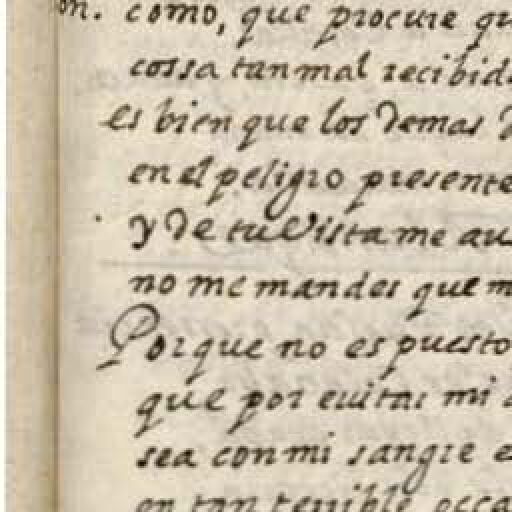 on. como, que procure qu
cossa tan mal recibida
es bien que los demas d
en el peligro presente
y de tu Vista me au
no me mandes que m
Porque no es puesto
que por euitar mi
sea con mi sangre e
en tan terrible occa